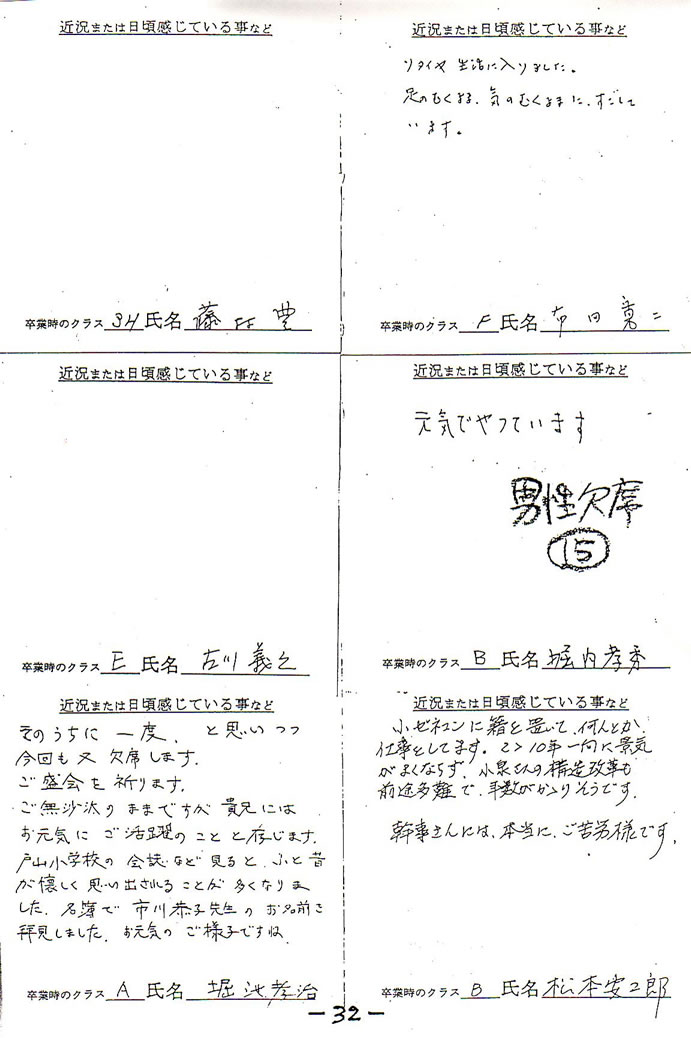 近況または日頃感じている事など
卒業時のクラス 3H 氏名 藤村 豊
近況または日頃感じている事など
リタイヤ生活に入りました。
足のむくまま、気のむくままに、すごして
います。
卒業時のクラス F 氏名 布田 二
近況または日頃感じている事など
卒業時のクラス E 氏名 古川 義之
近況または日頃感じている事など
元気でやっています
男性欠席
15
卒業時のクラス B 氏名 堀内孝秀
近況または日頃感じている事など
そのうちに 一度、 と思いつつ
今回も又 欠席します。
ご盛会を祈ります。
ご無沙汰のままですが 貴兄には
お元気に ご活躍のことと存じます。
戸山小学校の 会誌など見ると、ふと昔
が懐しく 思い出されることが 多くなりま
した。名簿で 市川恭子先生の お名前を
拝見しました。お元気の ご様子ですね
卒業時のクラス A 氏名 堀池孝治
近況または日頃感じている事など
小ゼネコンに籍を置いて、何んとか
仕事をしてます。ここ10年一向に景気
がよくならず、小泉さんの構造改革も
前途多難で、年数がかかりそうです。
幹事さんには、本当に、ご苦労様です。
卒業時のクラス B 氏名 松本安二郎
-32-